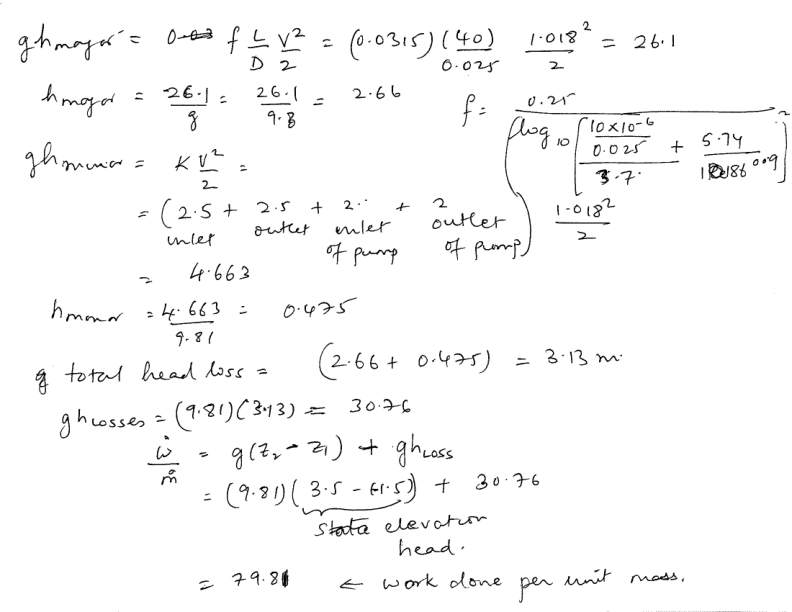 ghmajor = f L/D V²/2 = (0.0315) (40)/0.025 1.018²/2 = 26.1
hmajor = 26.1/g = 26.1/9.8 = 2.66
f = 0.25 / (log10 [ (10×10⁻⁶/0.025)/3.7 + 5.74/ 0.9 ])²
ghminor = K V²/2 =
= (2.5 + 2.5 + 2.. + 2) 1.018²/2
inlet outlet inlet of pump outlet of pump
= 4.663
hminor = 4.663/9.81 = 0.475
g total head loss = (2.66 + 0.475) = 3.13 m.
ghlosses = (9.81)(3.13) = 30.76
ẇ/ṁ = g(Z₂ - Z₁) + ghLoss
= (9.81)(3.5 - (-1.5)) + 30.76
elevation
head.
= 79.81 ← work done per unit mass.